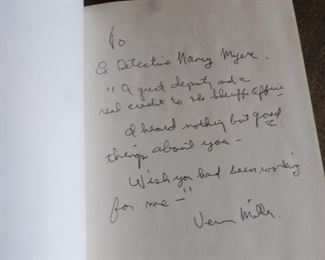 To
Detective Nancy Myers.
"A great deputy and a
real credit to the Sheriff's Office
I heard nothing but good
things about you -
Wish you had been working
for me -"
Vern Miller